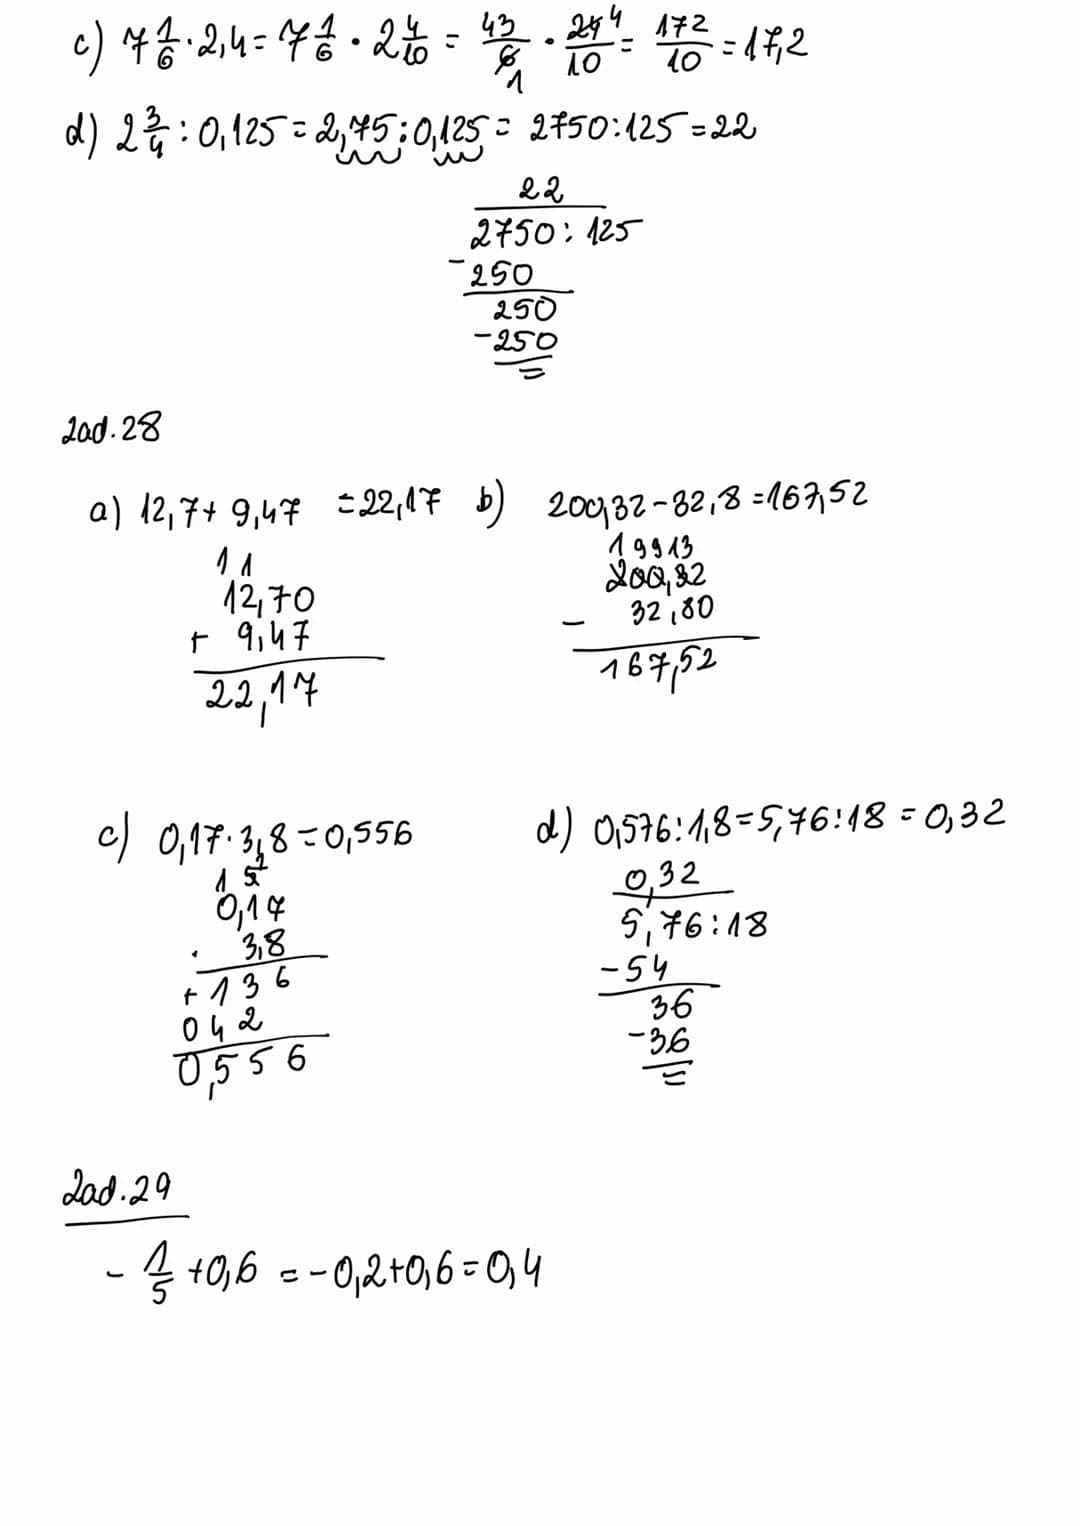 c) 7 1/6 · 2,4 = 7 1/6 · 2 4/10 = 43/6 · 24/10 = 172/10 = 17,2
4
1
d) 2 3/4 : 0,125 = 2,75 : 0,125 = 2750:125 = 22
22
2750 : 125
- 250
250
- 250
=
Zad. 28
a) 12,7 + 9,47 = 22,17
1 1
12,70
+ 9,47
22,17
b) 200,32 - 32,8 = 167,52
1 9 9 13
200,32
- 32,80
167,52
c) 0,17 · 3,8 = 0,556
0,17
· 3,8
+ 1 3 6
0 4 2
0,5 5 6
d) 0,576 : 1,8 = 5,76 : 18 = 0,32
0,32
5,76 : 18
- 54
36
- 36
=
Zad. 29
- 1/5 + 0,6 = -0,2 + 0,6 = 0,4